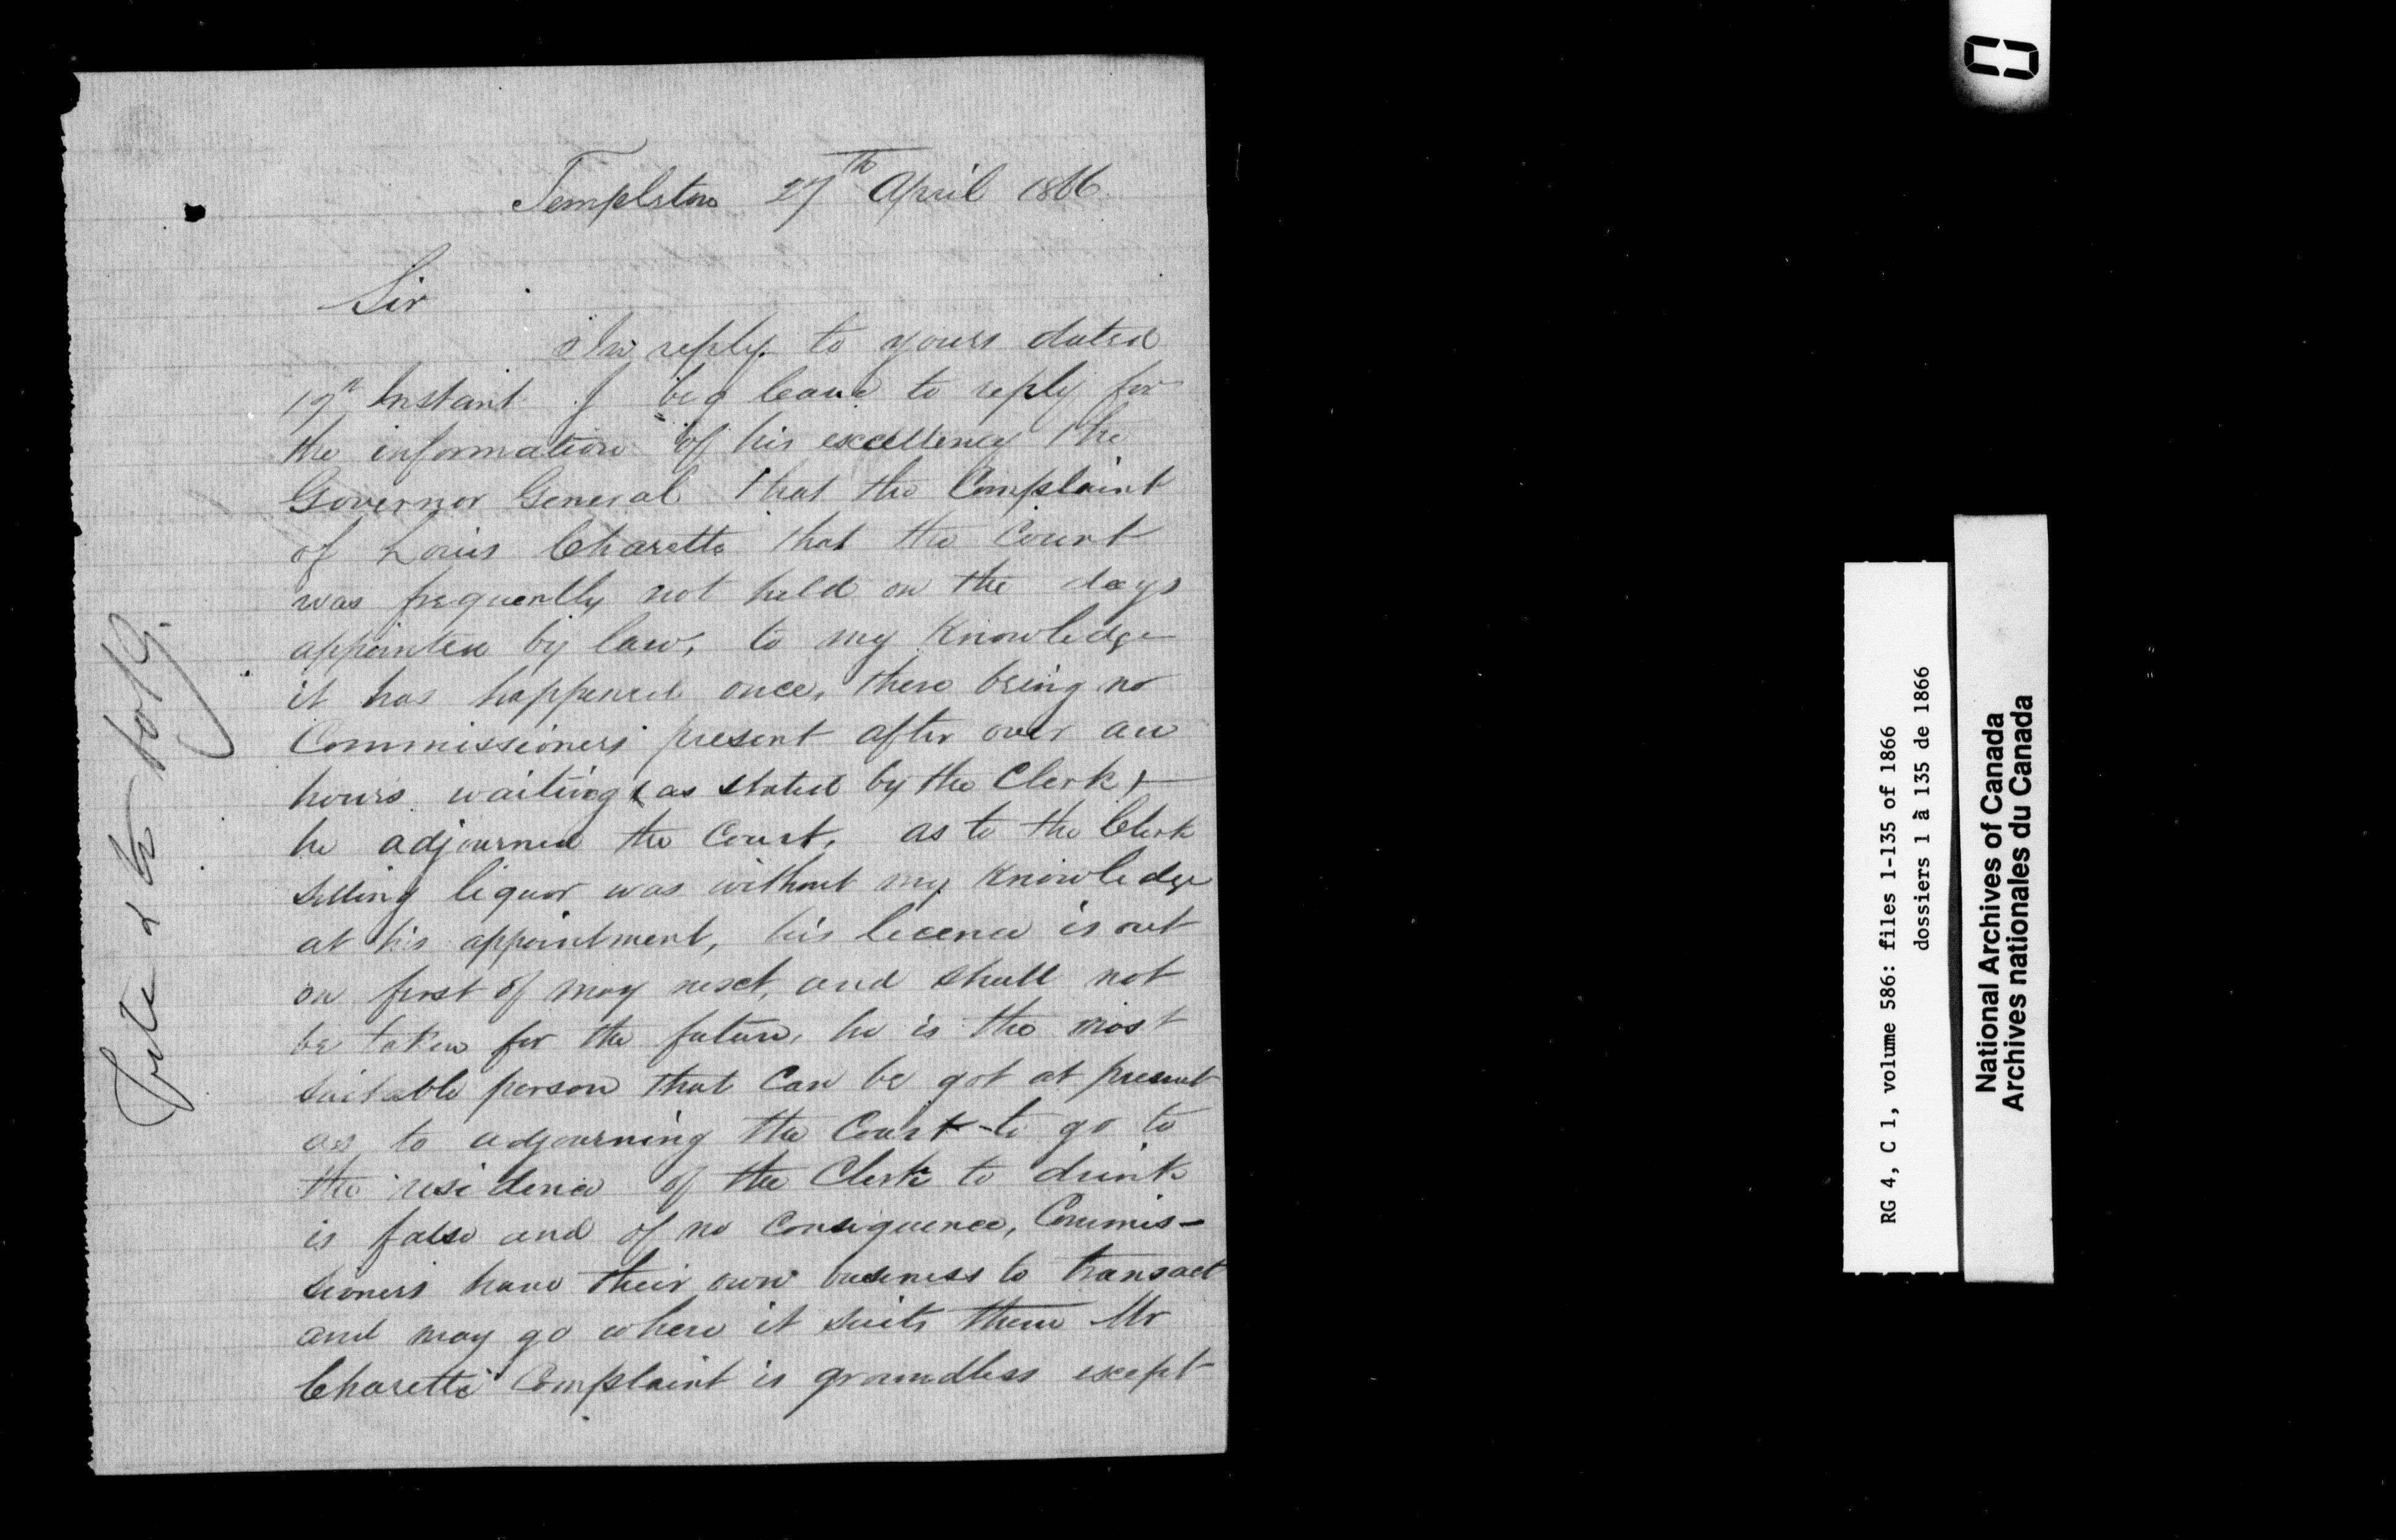 Templeton 27th April 1866
Sir
In reply to yours dated
17th Instant I beg leave to reply for
the information of his excellency the
Governor General that the Complaint
of Louis Charette that the Court
was frequently not held on the days
appointed by law, to my Knowledge
it has happened once, there being no
Commissioners present after over an
hours waiting (as stated by the Clerk)
he adjourned the Court, as to the Clerk
selling liquor was without my Knowledge
at his appointment, his licence is out
on first of may next, and shall not
be taken for the future, he is the most
suitable person that Can be got at present
as to adjourning the Court to go to
the residence of the Clerk to drink
is false and of no Consequence, Commis-
sioners have their own business to transact
and may go where it suits them Mr
Charette Complaint is groundless except
RG 4, C 1, volume 586: files 1-135 of 1866
dossiers 1 à 135 de 1866
National Archives of Canada
Archives nationales du Canada